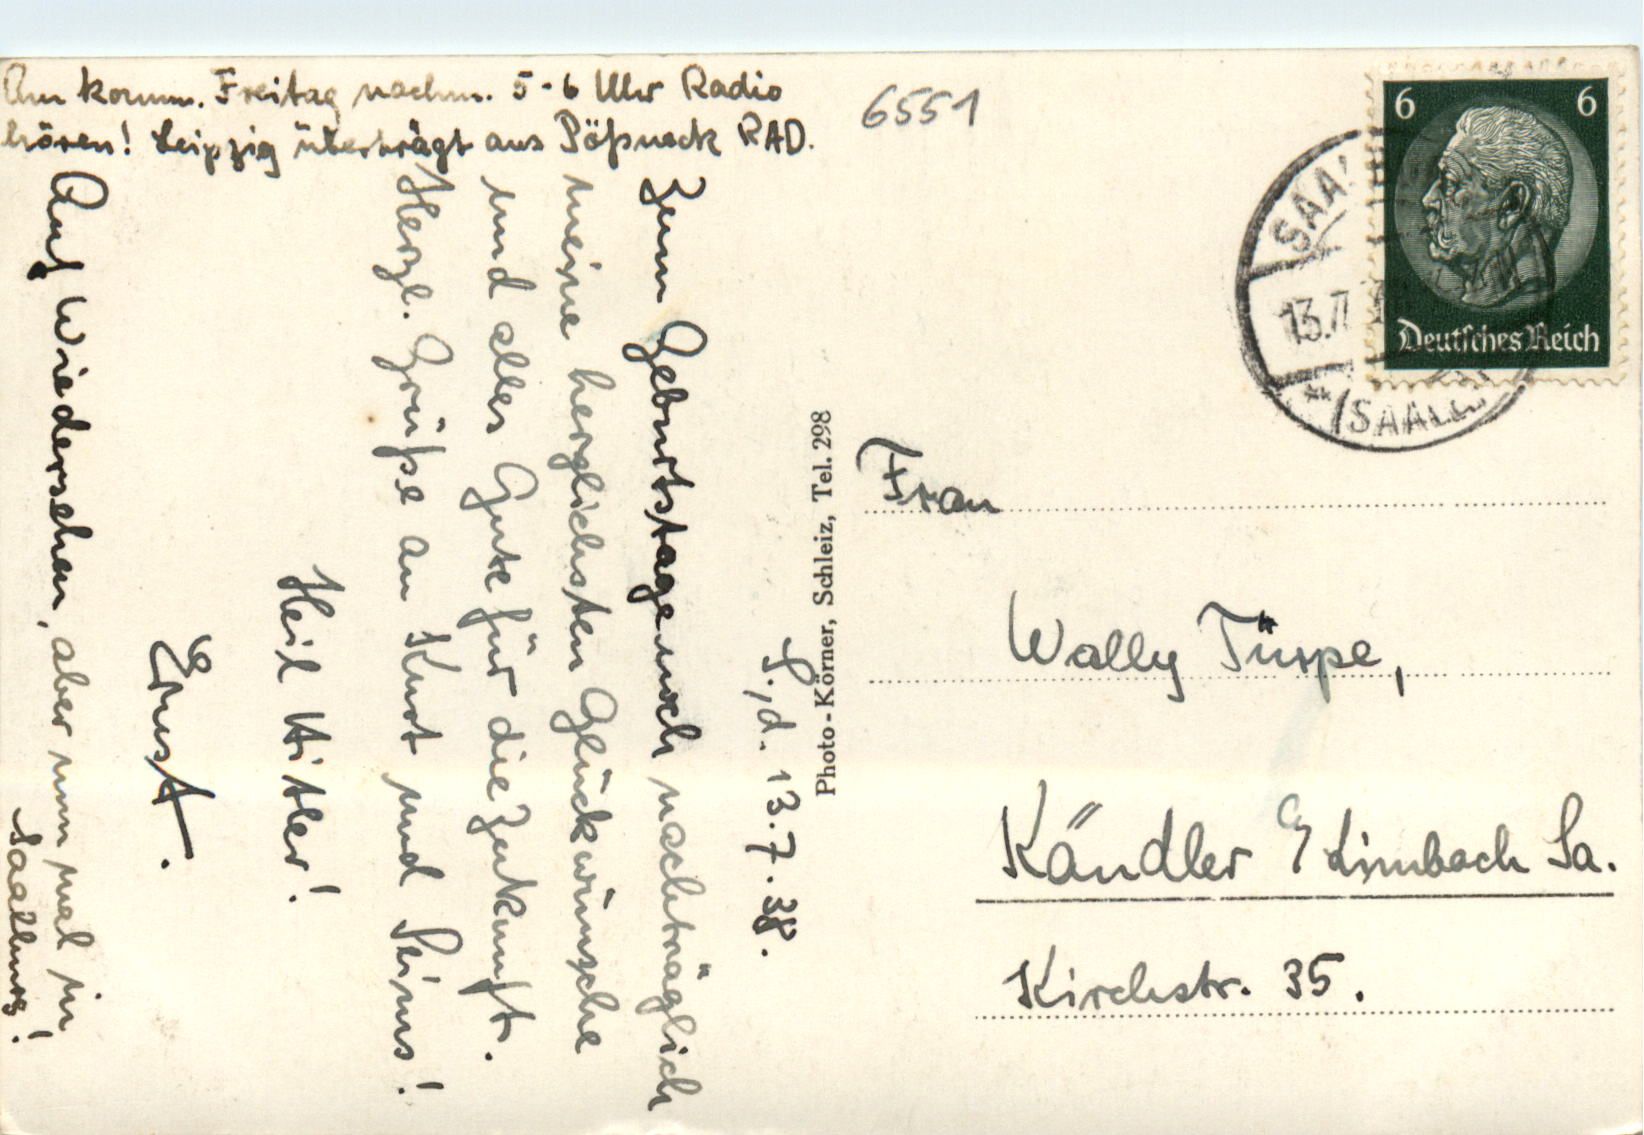 Am komm. Freitag nachm. 5-6 Uhr Radio
hören! Leipzig überträgt aus Pößneck RAD.
S., d. 13.7.38.
Zum Geburtstage noch nachträglich
meine herzlichsten Glückwünsche
und alles Gute für die Zukunft.
Herzl. Grüße an Kurt und Seims!
Heil Hitler!
Ernst.
Auf Wiedersehen, aber nun mal in
Saalburg!
Photo-Körner, Schleiz, Tel. 298
6551
6 6
Deutsches Reich
13.7.
(SAALE)
Frau
Wally Türpe,
Kändler / Limbach Sa.
Kirchstr. 35.